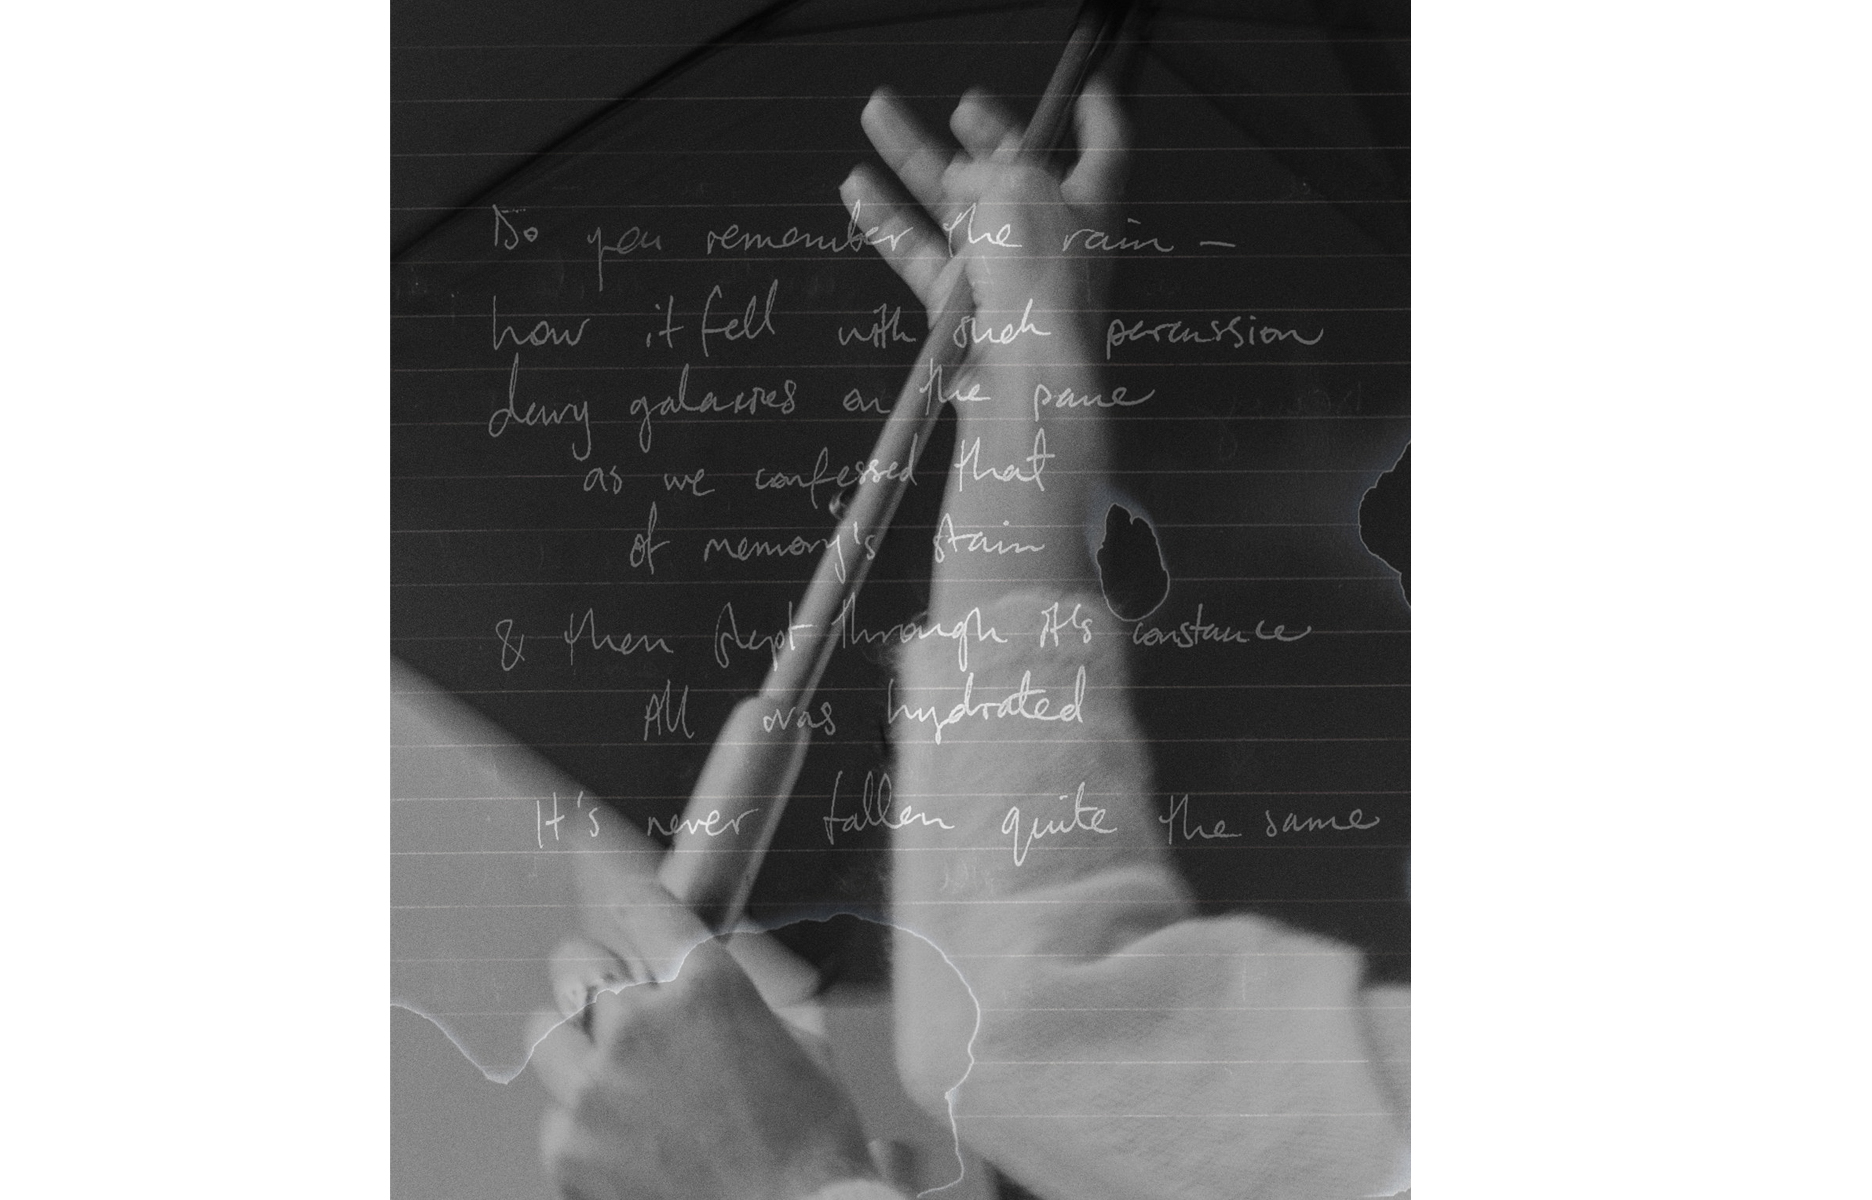 Do you remember the rain –
how it fell with such percussion
dewy galaxies on the pane
as we confessed that
of memory's stain
& then slept through it's constance
All was hydrated
It's never fallen quite the same